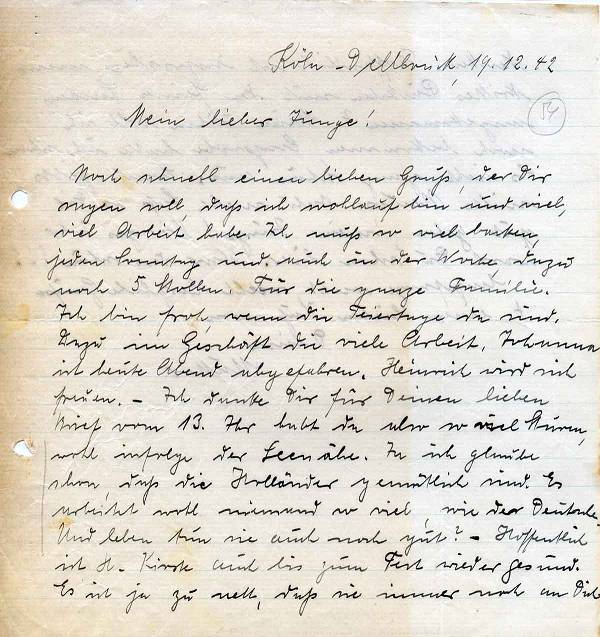 Köln-Dellbrück, 19.12.42
54
Mein lieber Junge!
Noch schnell einen lieben Gruß, der Dir
sagen soll, daß ich wohlauf bin und viel,
viel Arbeit habe. Ich muß so viel backen,
jeden Sonntag und auch in der Woche, dazu
noch 5 Stollen. Für die ganze Familie.
Ich bin froh, wenn die Feiertage da sind.
Dazu im Geschäft die viele Arbeit. Johanna
ist heute Abend abgefahren. Heinrich wird sich
freuen. – Ich danke Dir für Deinen lieben
Brief vom 13. Ihr habt da also so viel Sturm,
wohl infolge der Seenähe. Ja ich glaube
schon, daß die Holländer gemütlich sind. Es
arbeitet wohl niemand so viel, wie der Deutsche.
Und leben tun sie auch noch gut? – Hoffentlich
ist H. auch bis zum Fest wieder gesund.
Es ist ja zu nett, daß sie immer noch an Dich